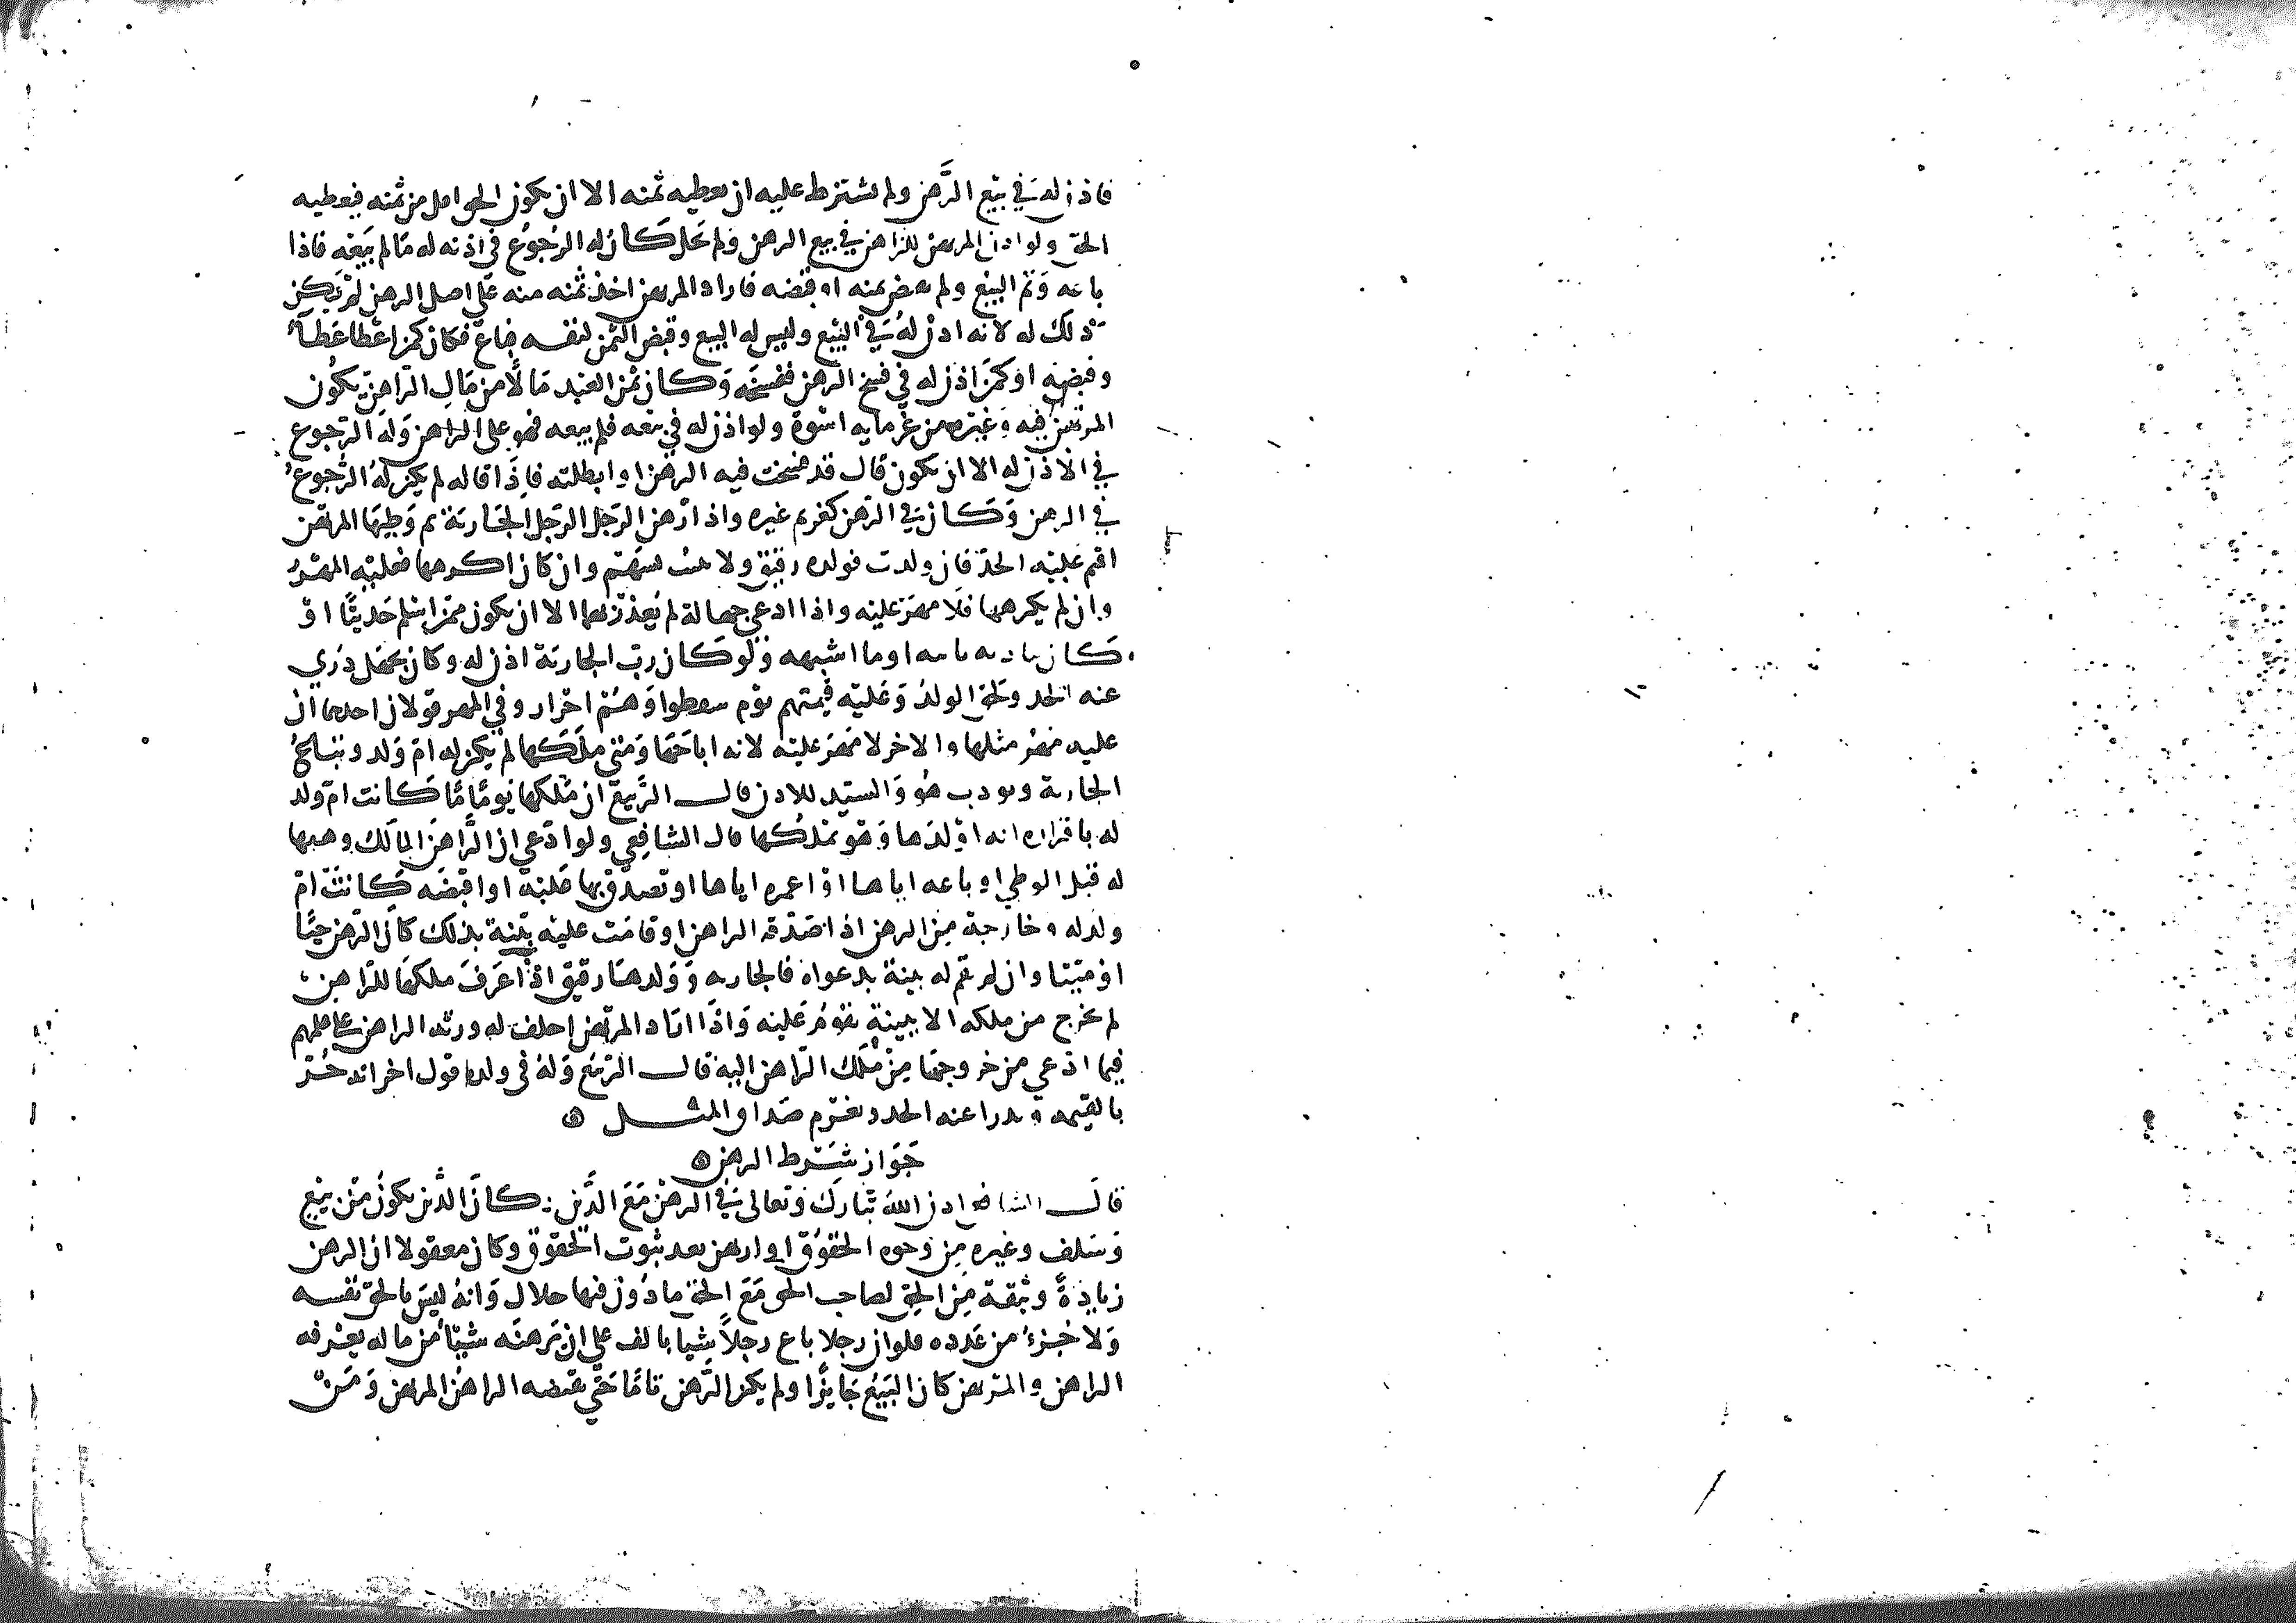 فاذن له في بيع الرهن ولم يشترط عليه ان يعطيه ثمنه الا ان يكون الحق اقل من ثمنه فيعطيه
الحق ولو اذن المرتهن للراهن في بيع الرهن ولم يحل كان له الرجوع في اذنه له ما لم يبعه فاذا
باعه وتم البيع ولم يقبض ثمنه او قبضه فاراد المرتهن اخذ ثمنه منه على اصل الرهن لم يكن
ذلك له لانه اذن له في البيع وليس له البيع وقبض الثمن لنفسه فباع فكان كمن اعطا عطاً
وقبضه او كمن اذن له في فسخ الرهن ففسخه وكان ثمن العبد مالًا من مال الراهن يكون
المرتهن فيه وغيره من غرمايه اسوة ولو اذن له في بيعه فلم يبعه فهو على الراهن وله الرجوع
في الاذن له الا ان يكون قال قد فسخت فيه الرهن او ابطلته فاذا قاله لم يكن له الرجوع
في الرهن وكان في الرهن كغريم غيره واذا رهن الرجل الرجل الجارية ثم وطيها المرتهن
اقيم عليه الحد فان ولدت فولده رقيق ولا يثبت نسبهم وان كان اكرهها فعليه المهر
وان لم يكرهها فلا مهر عليه واذا ادعى جهالة لم يعذر بها الا ان يكون ممن اسلم حديثًا او
كان ببادية نايية او ما اشبهه ولو كان رب الجارية اذن له وكان يجهل دري
عنه الحد ولحق الولد وعليه قيمتهم يوم سقطوا وهم احرار وفي المهر قولان احدهما ان
عليه مهر مثلها والاخر لا مهر عليه لانه اباحها ومتى ملكها لم يكن له ام ولد وتباع
الجارية ويودب هو والسيد للاذن قال الربيع ان ملكها يومًا ما كانت ام ولد
له باقراره انه اولدها وهو يملكها قال الشافعي ولو ادعى ان الراهن المالك وهبها
له قبل الوطي او باعه اياها او اعمره اياها او تصدق بها عليه او اقبضه كانت ام
ولد له وخارجة من الرهن اذا صدقه الراهن او قامت عليه بينة بذلك كان الرهن حيًا
او ميتا وان لم تقم له بينة بدعواه فالجاريه وولدها رقيق اذا عرف ملكها للراهن
لم تخرج من ملكه الا ببينة تقوم عليه واذا اراد المرتهن احلف له ورثه الراهن على علمهم
فيما ادعي من خروجها من ملك الراهن اليه قال الربيع وله في ولده قول اخر انه حر
بالقيمه ويدرا عنه الحد ويغرم صداق المثل
جواز شرط الرهن
قال الشافعي اذن الله تبارك وتعالى في الرهن مع الدين كان الدين يكون من بيع
وسلف وغيره من وجوه الحقوق او ارهن بعد ثبوت الحقوق وكان معقولا ان الرهن
زيادةً وثيقة من الحق لصاحب الحق مع الحق ماذون فيها حلال وانه ليس بالحق نفسه
ولا جزء من عدده فلو ان رجلا باع رجلاً شيا بالف على ان يرهنه شيئًا من ماله يعرفه
الراهن والمرتهن كان البيع جايزًا ولم يكن الرهن تامًا حتى يقبضه الراهن المرتهن ومن